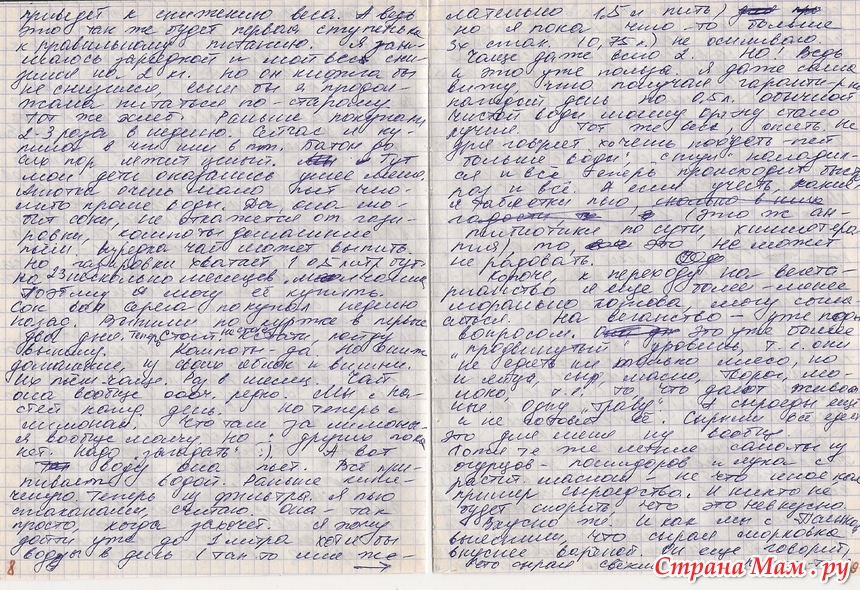 приведёт к снижению веса. А ведь
это так же будет первая ступенька
к правильному питанию. Я зани-
маюсь зарядкой и мой вес сни-
зился на 2 кг. Но он никогда бы
не снизился, если бы я продол-
жала питаться по-старому.
Тот же хлеб. Раньше покупали
2-3 раза в неделю. Сейчас я ку-
пила в чт или в пт. Батон до
сих пор лежит целый. Тут
мои дети оказались умнее меня.
очень мало пьёт что-
либо кроме воды. Да, она лю-
бит соки, не откажется от гази-
ровки, компоты домашние
пьём, изредка чай может выпить.
Но газировки хватает 1 0,5 литр. бут.
на 2-3 несколько месяцев.
Поэтому я могу её купить.
Сок вот Серёга покупал неделю
назад. Выпили по кружке в первые
два дня. Теперь стоит. Кстати, пойду
вылью. Компоты - да. Но они ж
домашние, из своих яблок и вишни.
Их пьём чаще. Раз в месяц. Чай
она вообще оооч. редко. Мы с На-
стей каждый день. Но теперь с
лимоном. Что там за лимоны -
я вообще молчу. Но других пока
нет. Надо "загадать" :). А вот
воду она пьёт. Всё при-
пивает водой. Раньше кипя-
чёную. Теперь из фильтра. Я пью
стаканами, считаю. Она - так
просто, когда захочет. Я хочу
дойти уже до 1 литра хотя бы
воды в день (так то мне же-
8
лательно 1,5 л пить)
но я пока что то больше
3х стак. (0,75 л.) не осиливаю.
Чаще даже всего 2. Но! Ведь
и это уже польза. Я даже сама
вижу, что получая гарантир-но
каждый день по 0,5 л. обычной
чистой воды моему орг-му стало
лучше. Тот же весь, опять. Не
зря говорят хочешь похудеть - пей
больше воды, стул наладил-
ся и всё теперь происходит быст-
ро и всё. А если учесть, какие
я таблетки пью,
(это ж ан-
тибиотики по сути, химиотера-
пия), то, это не может
не радовать.
Короче, к переходу на вегета-
рианство я ещё более-менее
морально готова могу согла-
ситься. На веганство - уже под
вопросом. Это уже более
"продвинутый" уровень, т.е. они
не едят не только мясо, но
и яйца, сыр, масло, творог, мо-
локо, т.е. то что дают живот-
ные. Одну "траву". А сыроеды ещё
и не готовят её. Сырыми всё едят
это для меня ну вообще
Хотя те же летние салаты из
огурцов - помидоров и лука с
растит. маслом - не что иное как
пример сыроедства. И никто не
будет спорить, что это невкусно.
Вкусно же. И как мы с
выяснили, что сырая морковка
вкуснее варёной. Он ещё говорит,
что сырая свёкла
СтранаМам.ру